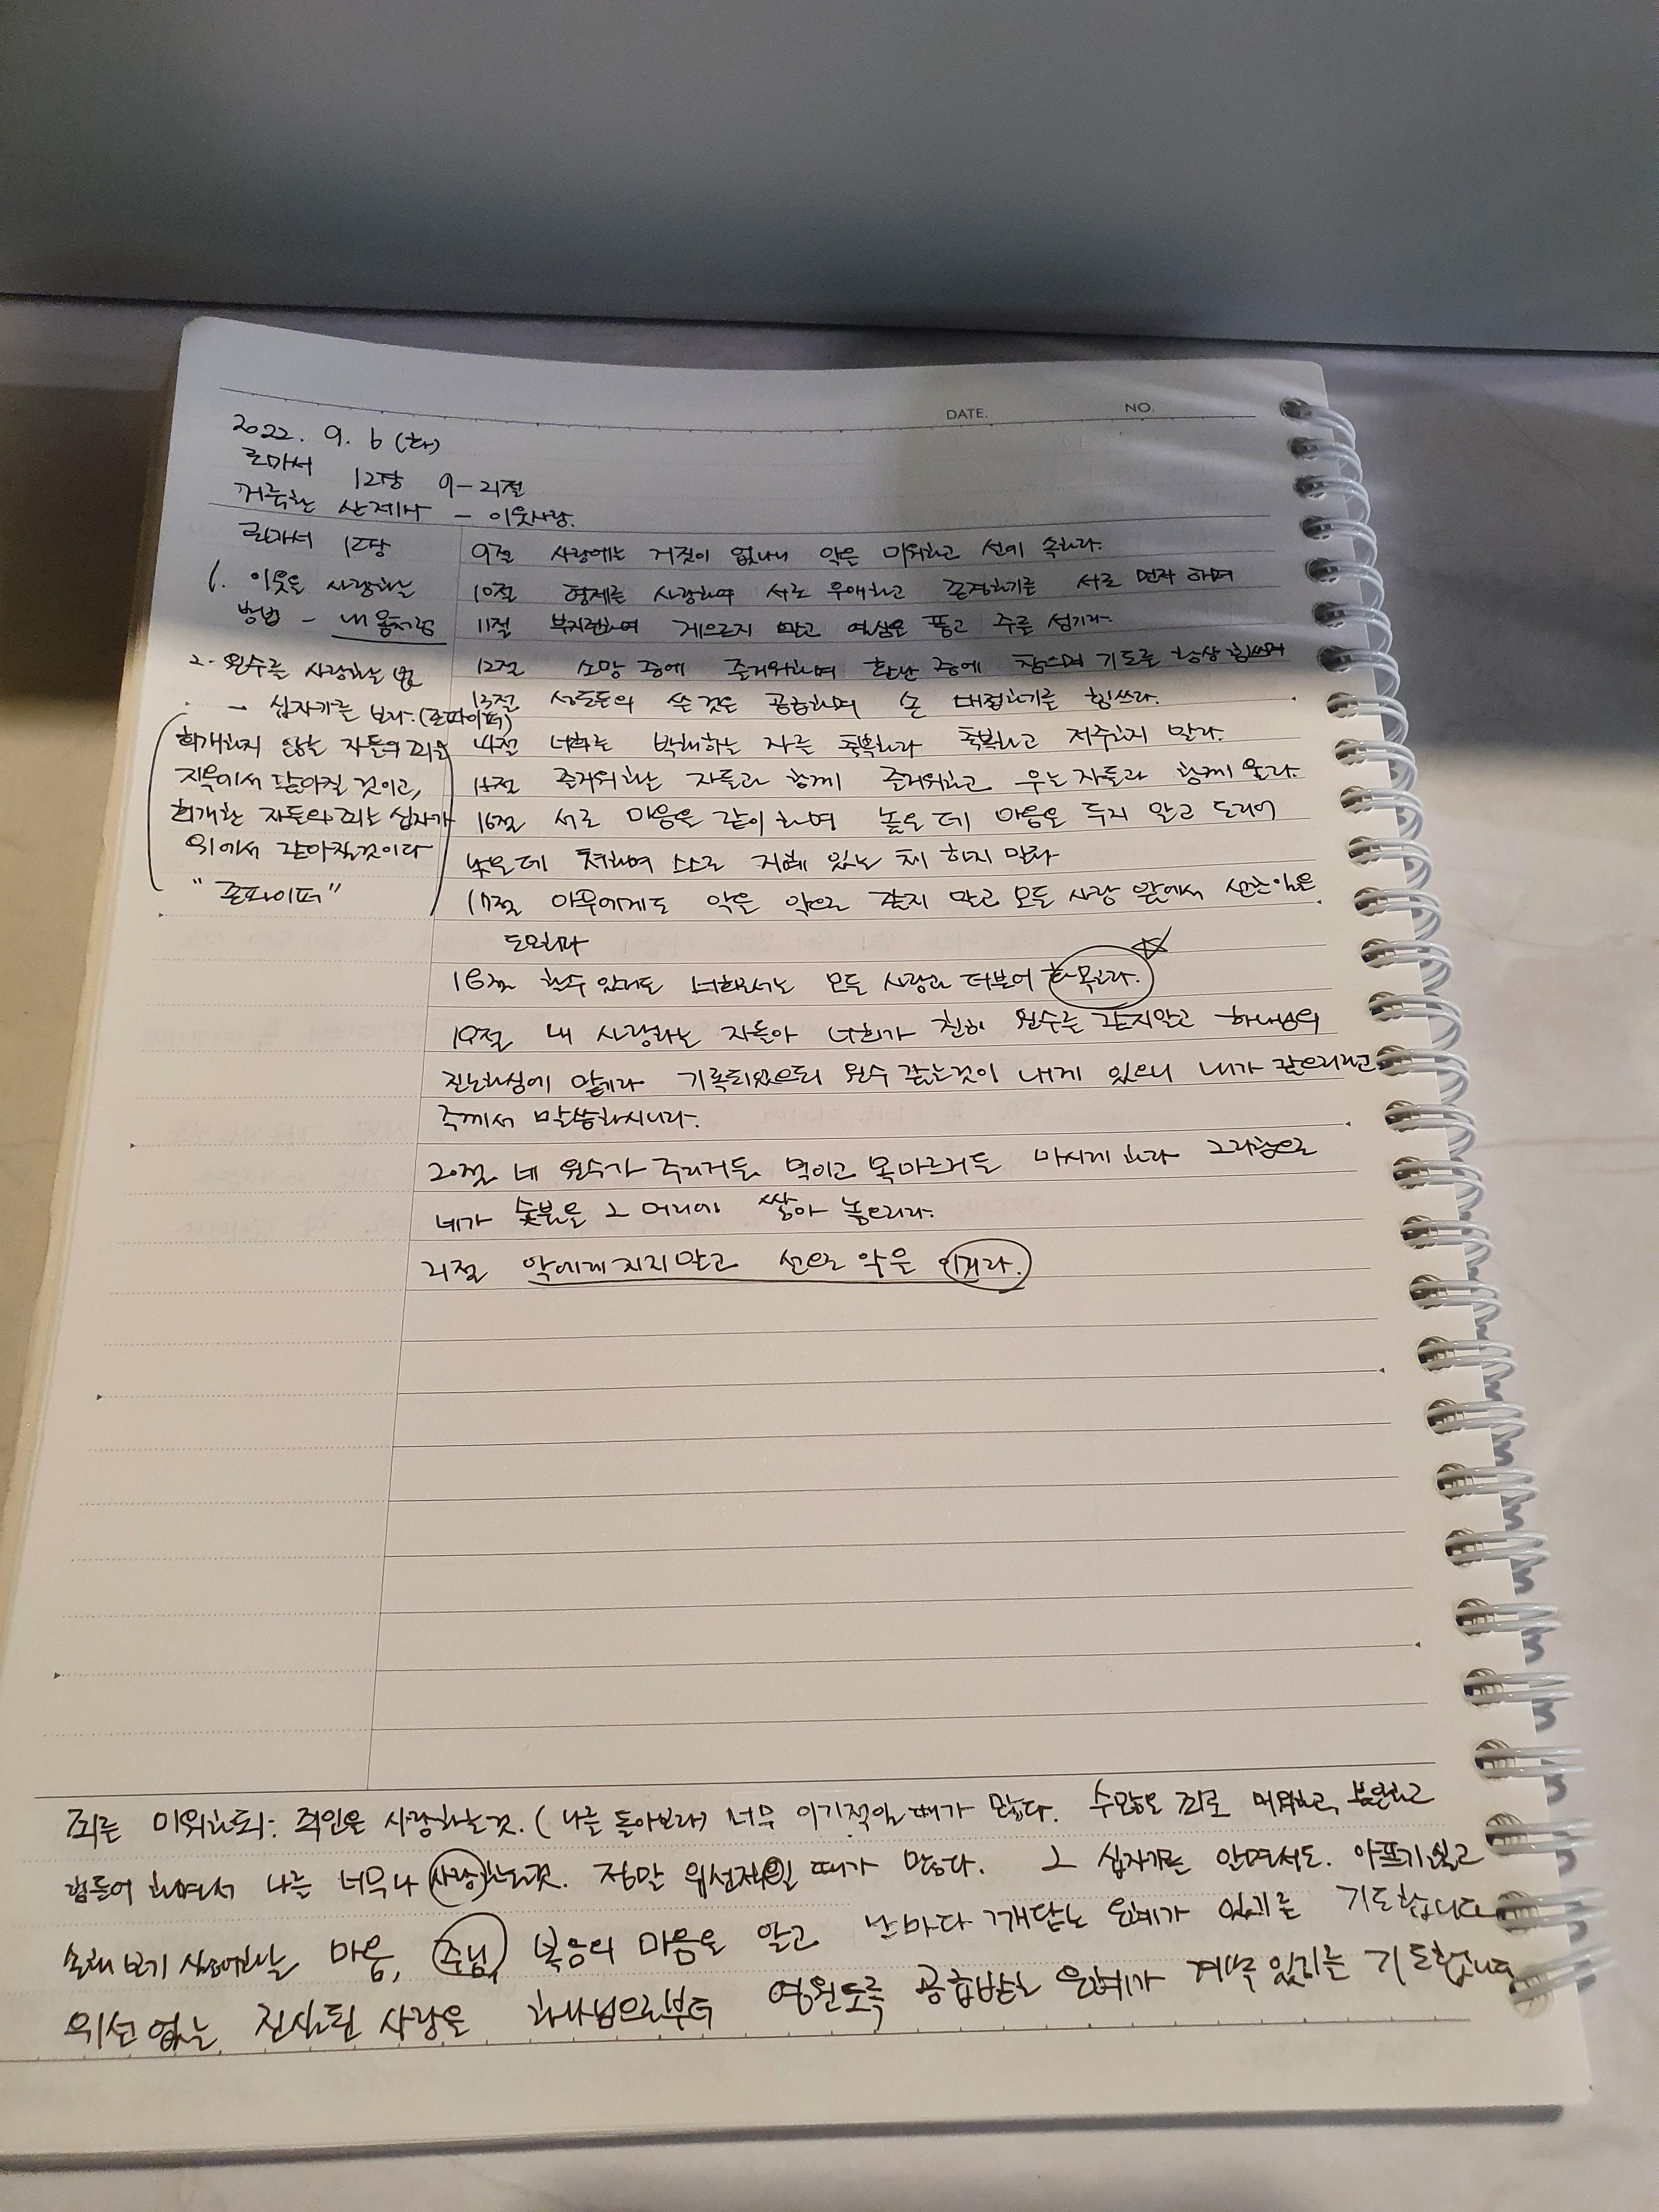 DATE. NO.
2022. 9. 6 (화)
로마서 12장 9-21절
거룩한 산 제사 - 이웃사랑.
로마서 12장
1. 이웃을 사랑하는
방법 - 내 몸처럼
2. 원수를 사랑하는 법
- 십자가를 보라. (존파이퍼)
회개하지 않는 자들의 죄는
지옥에서 갚아질 것이고,
회개한 자들의 죄는 십자가
위에서 갚아질것이다
"존파이퍼"
9절 사랑에는 거짓이 없나니 악을 미워하고 선에 속하라.
10절 형제를 사랑하여 서로 우애하고 존경하기를 서로 먼저 하며
11절 부지런하여 게으르지 말고 열심을 품고 주를 섬기라.
12절 소망 중에 즐거워하며 환난 중에 참으며 기도를 항상 힘쓰며
13절 성도들의 쓸 것을 공급하며 손 대접하기를 힘쓰라.
14절 너희를 박해하는 자를 축복하라 축복하고 저주하지 말라.
15절 즐거워하는 자들과 함께 즐거워하고 우는 자들과 함께 울라.
16절 서로 마음을 같이 하며 높은 데 마음을 두지 말고 도리어
낮은 데 처하며 스스로 지혜 있는 체 하지 말라
17절 아무에게도 악을 악으로 갚지 말고 모든 사람 앞에서 선한 일을
도모하라
18절 할 수 있거든 너희로서는 모든 사람과 더불어 화목하라.
19절 내 사랑하는 자들아 너희가 친히 원수를 갚지말고 하나님의
진노하심에 맡기라 기록되었으되 원수 갚는것이 내게 있으니 내가 갚으리라고
주께서 말씀하시니라.
20절 네 원수가 주리거든 먹이고 목마르거든 마시게 하라 그리함으로
네가 숯불을 그 머리에 쌓아 놓으리라.
21절 악에게 지지 말고 선으로 악을 이기라.
죄를 미워하되 죄인을 사랑하는것. (나를 돌아보라) 너무 이기적일 때가 많다. 수많은 죄로 미워하고, 분란하고
힘들어 하면서 나를 너무나 사랑하는것. 정말 위선적일 때가 많다. 그 십자가를 알면서도. 아프기 싫고
손해 보기 싫어하는 마음, 주님, 복음의 마음을 알고 날마다 깨닫는 은혜가 있기를 기도합니다
위선 없는 진실된 사랑을 하나님으로부터 영원토록 공급받는 은혜가 계속 있기를 기도합니다